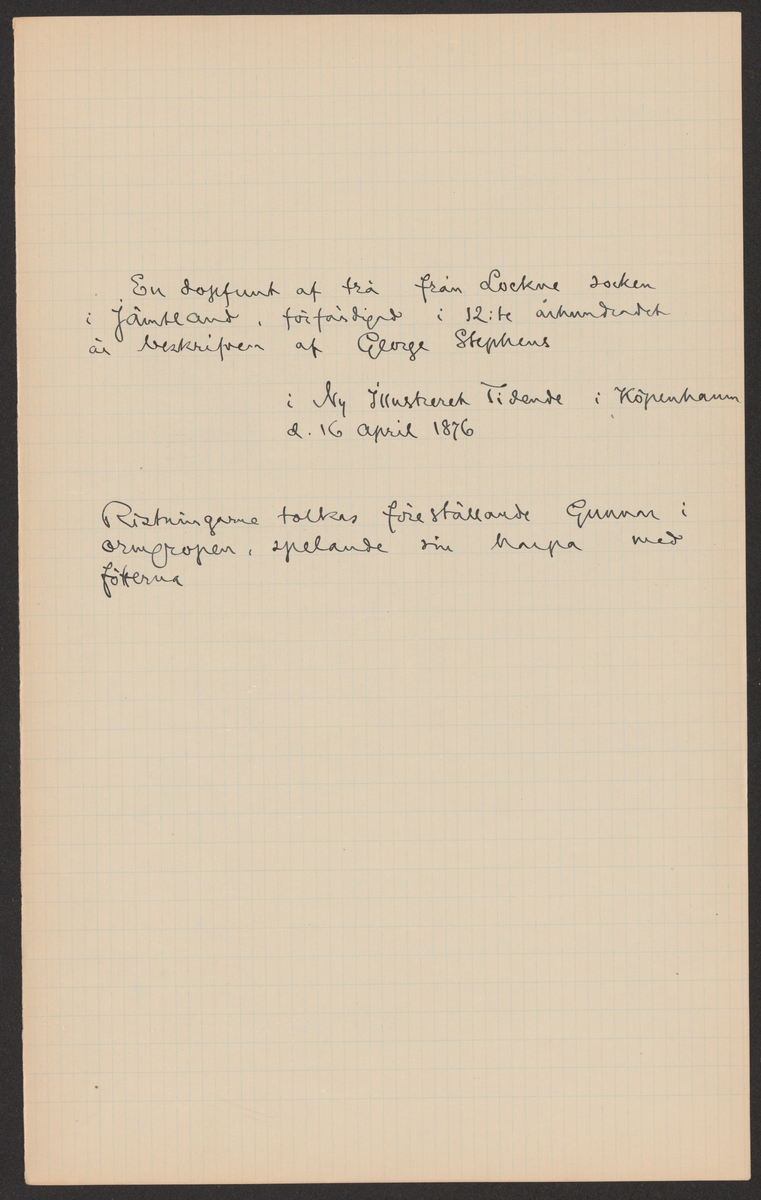 En dopfunt af trä från Lockne socken
i Jämtland, förfärdigad i 12:te århundradet
är beskrifven af George Stephens
i Ny Illustreret Tidende i Köpenhamn
d. 16 April 1876
Ristningarne tolkas föreställande Gunnar i
ormgropen, spelande sin harpa med
fötterna